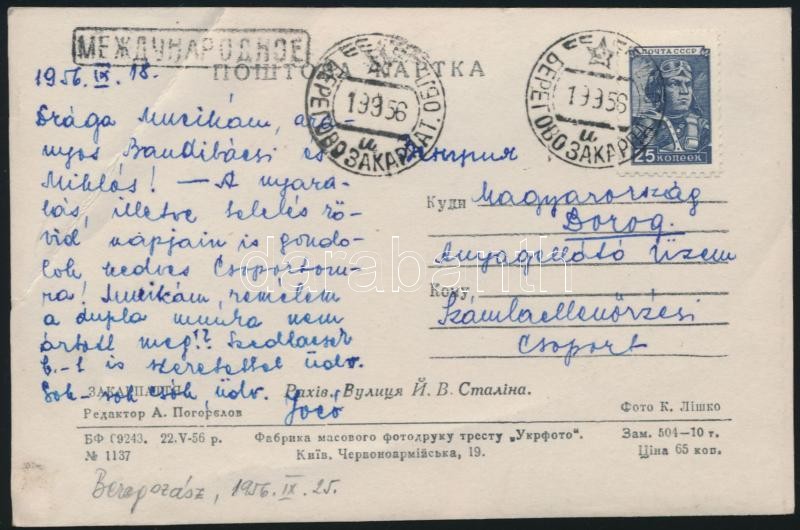 МЕЖДУНАРОДНОЕ
ПОШТОВА КАРТКА
БЕРЕГОВО ЗАКАРПАТ. ОБЛ.
19 9 56
и
БЕРЕГОВО ЗАКАРПАТ.
19 9 56
и
ПОЧТА СССР
25 КОПЕЕК
1956. IX. 18.
Drága Mucikám, ara-
nyos Bandibácsi és
Miklós! — A nyara-
lás, illetve telelés rö-
vid napjain is gondo-
lok kedves Csoportom-
ra! Mucikám, remélem
a dupla munka nem
ártott meg!? Szedlacsek
E.-t is szeretettel üdv.
Sok-sok csók, üdv. Jocó
Венгрия
Куди Magyarország
Dorog.
Anyagellátó Üzem
Кому
Számlaellenőrzési
Csoport
darabanth
ЗАКАРПАТТЯ
Рахів. Вулиця Й. В. Сталіна.
Редактор А. Погорєлов
Фото К. Лішко
БФ 09243. 22.V-56 р.
Фабрика масового фотодруку тресту „Укрфото".
Зам. 504—10 т.
№ 1137
Київ. Червоноармійська, 19.
Ціна 65 коп.
Beregszász, 1956. IX. 25.